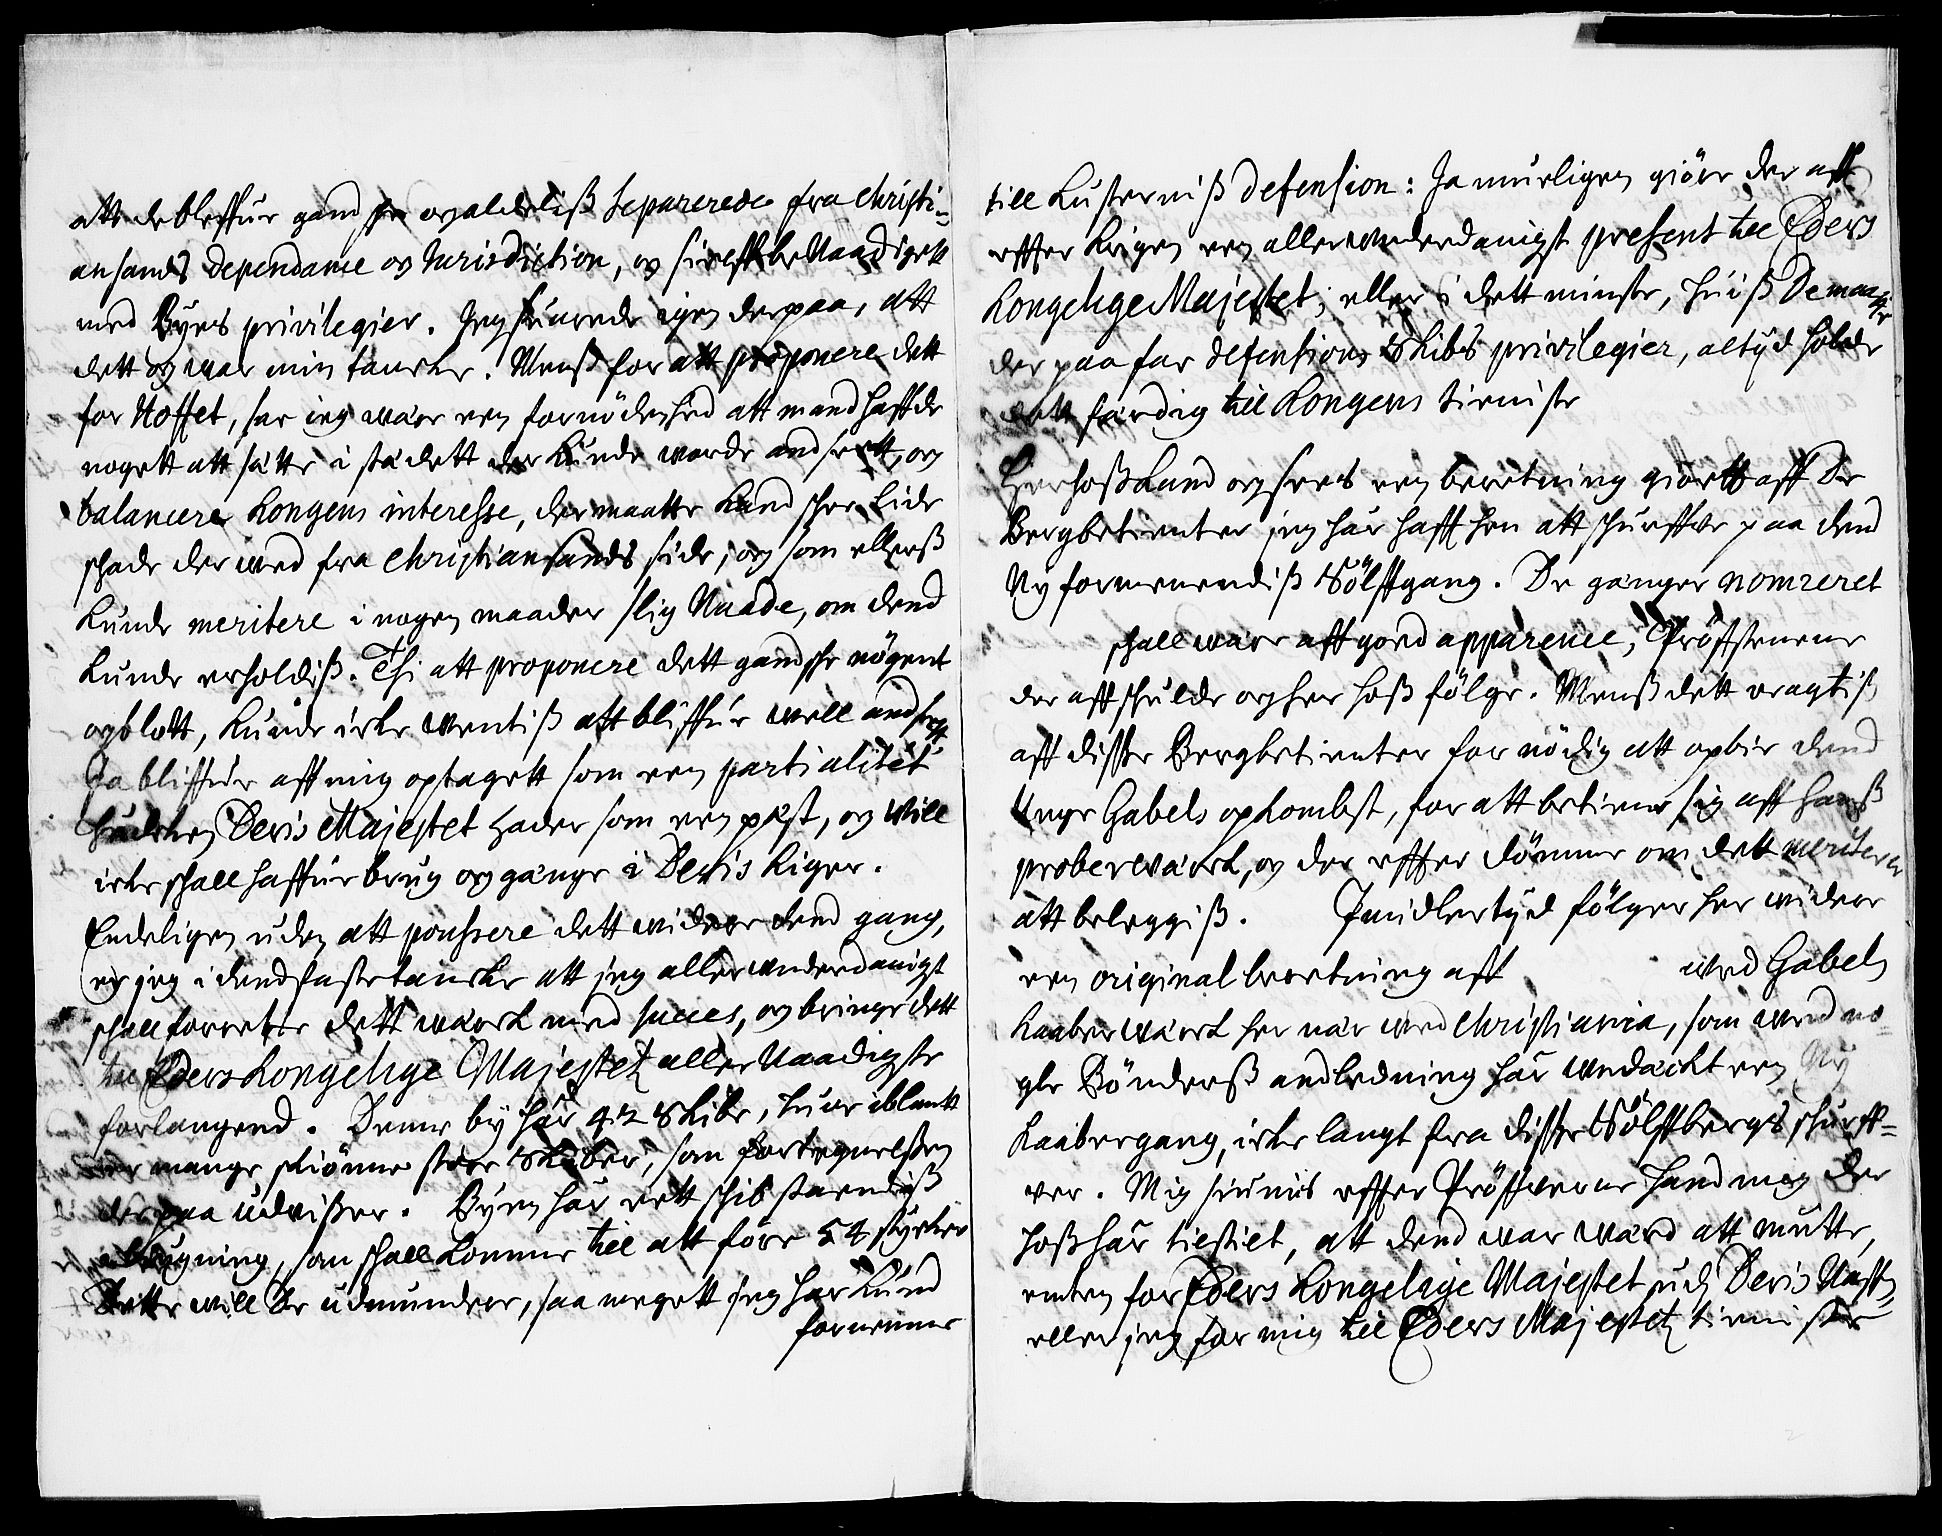 att de bleffue gand og aldeliß Separerede fra Christi-
ansands dependance og Jurisdiction, og siden beNaadigett
med Byes privilegier. Jeg suarede igen derpaa, att
dett og war min tancke. Menß for att proponere dett
for Hoffet, saa war een fornödenhed att mand haffde
nogett att sätte i stædett der Kunde worde andseett, og
balancere Kongens interesse, der maatte Kand skee Lide
skade der wed fra Christiansands side, og som ellerß
Kunde meritere i nogen maader slig Naade, om dend
Kunde erholdiß. Thi att proponere dett gandske nögent
og blott, Kunde icke wentiß att bliffue well andseett
Ja bliffue aff mig optagett som een partialitet
huilcken Deris Majestet hader som een pæst, og will
icke skall haffue brug og gænge i Deris Riger.
Endeligen uden att poussere dett widere dend gang,
er jeg i dend faste tancke att jeg allerunderdanigst
skall forrette dett wærck med succes, og bringe dett
till Eders Kongelige Majestetz aller Naadigste
forlangend. Denne by har 42 Skibe, huor iblant
er mange skiönne store Skibe, som fortegnelssen
der paa udwisser. Byen har ett skib staendiß
i bygning, som skall komme till att före 54 stycker
Dette will De udmundere, saa megett jeg har Kund
fornemme
till Kusterniß defension: Ja mueligen giöre der aff
effter Krigen een allerunderdanigst present till Eders
Kongelige Majestet; eller i dett minste, huiß De maa
der paa faa defensions Skibs privilegier, altyd holde
dett færdig till Kongens tieniste
Herhoß Kand og sees een beretning giörett aff De
Bergbetienter jeg har hafft hen att skurffve paa dend
Ny formenendiß Sölffgang. De gænger nomreret
skall wære aff goed apparence, Pröffstenene
der aff skulde og her hoß fölge. Menß dett eragtiß
aff disse Bergbetienter for nödig att opbie dend
Unge Gabels opkombst, for att betiene sig aff hanß
proberwærck, og der effter dömme om dett meriterer
att beleggiß. Imidlertyd fölger her widere
een original beretning aff wed Gabels
Kaaberwærck her nær wed Christiania, som wed no-
gle Bönderß andledning har undäckt een Ny
Kaabergang, icke langt fra disse Sölffbergs skurff-
ver. Mig siunis effter Pröfverne hand mig der
hoß har tilstilet, att dend war wærd att mutte,
enten for Eders Kongelige Majestet udi Deris Nafn,
eller jeg for mig till Eders Majestetz tieniste-